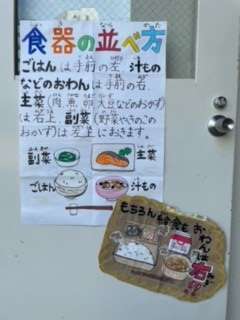 食器の並べ方
ごはんは手前の左 汁もの
などのおわんは手前の右、
主菜(肉 魚 卵 大豆などのおかず)
は右上、副菜(野菜やきのこの
おかず)は左上におきます。
副菜 主菜
ごはん 汁もの
もちろん給食もおわんは
右!!